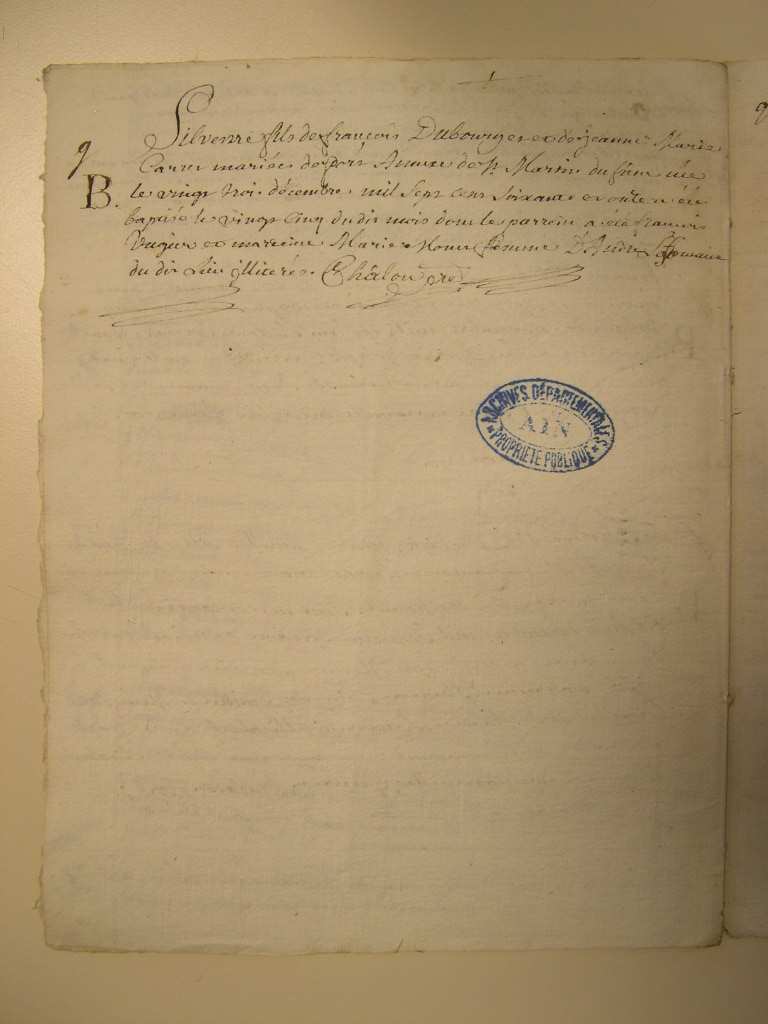 9
Silvestre fils de françois Dubourg et de jeanne Marie
B. Carre mariés de port Annexe de St Martin du frêne née
le vingt troi décembre mil sept cent soixante et onze a été
baptisé le vingt cinq du dit mois dont le parrein a été françois
et marreine Marie femme D'André
du dit lieu illiterés. Châlon
ARCHIVES DÉPARTEMENTALES
AIN
PROPRIÉTÉ PUBLIQUE